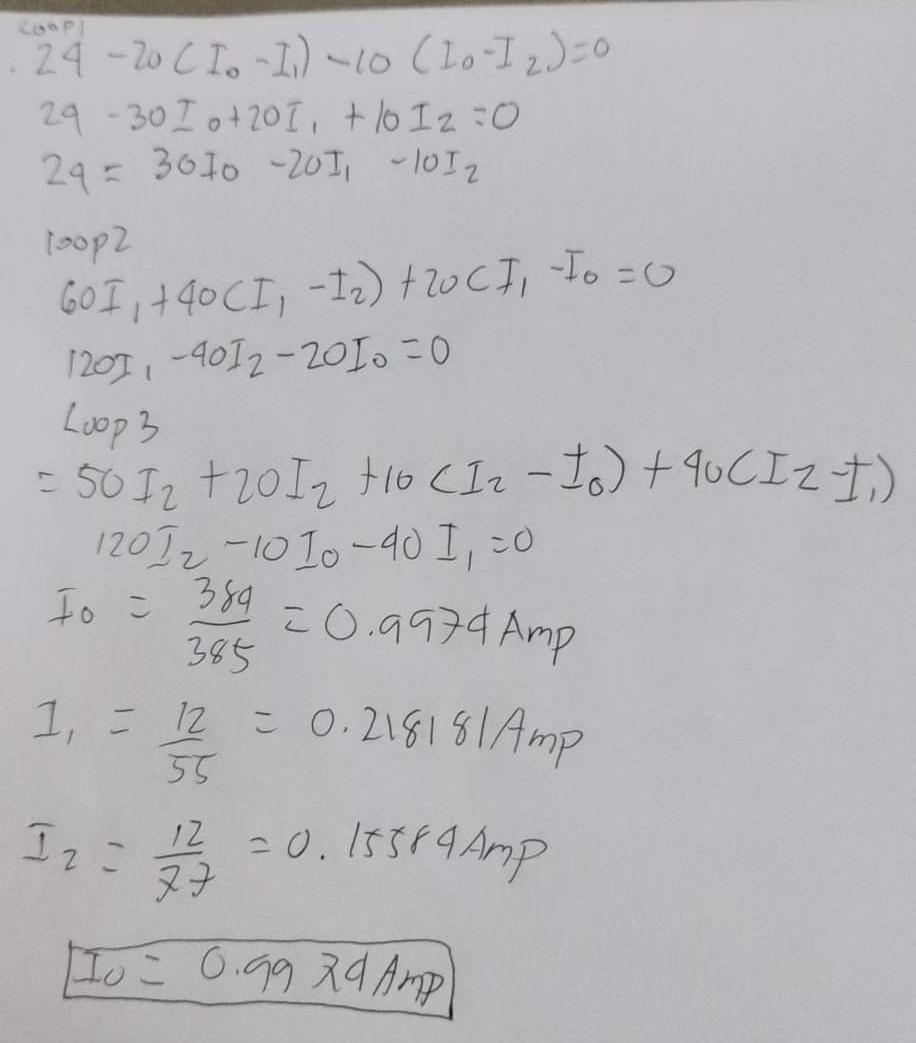 Loop1
24 -20(I₀-I₁)-10 (I₀-I₂)=0
24 -30I₀+20I₁ +10I₂=0
24= 30I₀ -20I₁ -10I₂
loop2
60I₁+40(I₁ -I₂)+20(I₁ -I₀=0
120I₁ -40I₂-20I₀=0
Loop3
=50I₂ +20I₂ +10(I₂ -I₀)+40(I₂-I₁)
120I₂ -10I₀-40I₁=0
I₀ = 384/385 = 0.9974 Amp
I₁ = 12/55 = 0.218181 Amp
I₂ = 12/77 = 0.15584 Amp
I₀ = 0.9974 Amp